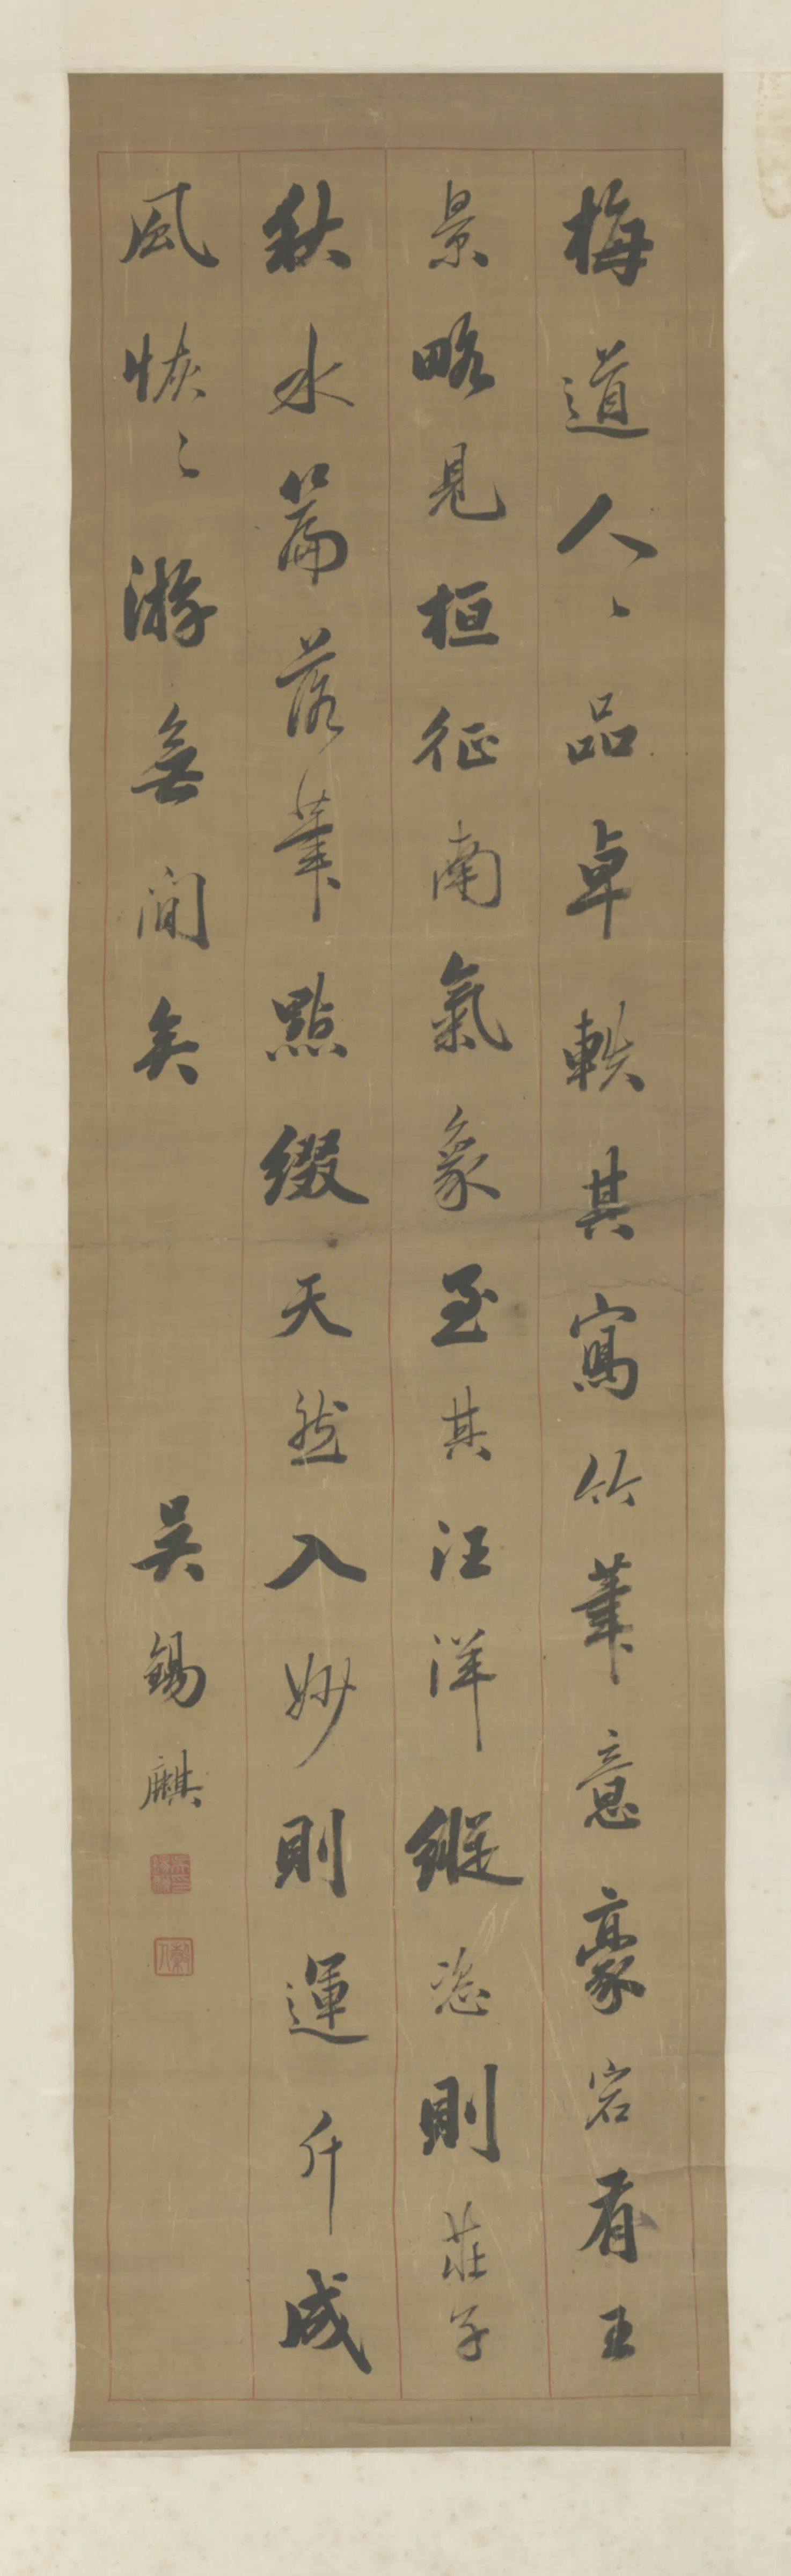 梅道人〻品卓軼其寫竹筆意豪宕有王
景略見桓征南氣象至其汪洋縱恣則莊子
秋水篇落筆點綴天然入妙則運斤成
風恢〻游無間矣
吳錫麒